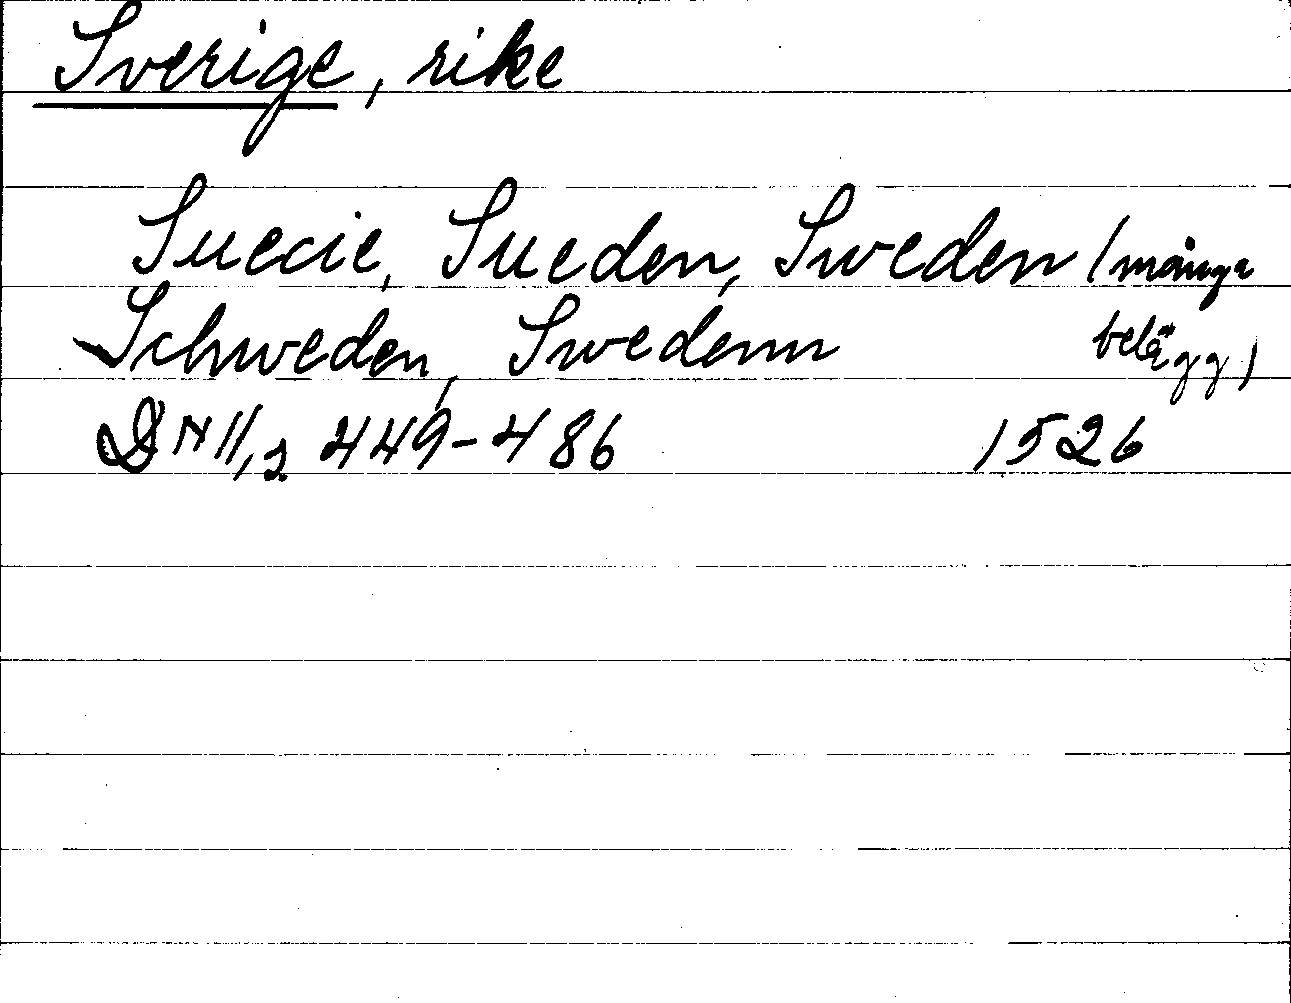 Sverige, rike
Suecie, Sueden, Sweden (många
Schweden, Swedenn belägg)
DN 11,2 449-486 1526